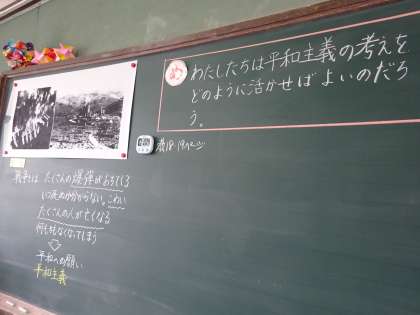 め
わたしたちは平和主義の考えを
どのように活かせばよいのだろ
う。
教18・19ページ
戦争とは たくさんの爆弾がおちてくる
いつ死ぬか分からない。こわい
たくさんの人が亡くなる
何もかもなくなってしまう
平和への願い
平和主義